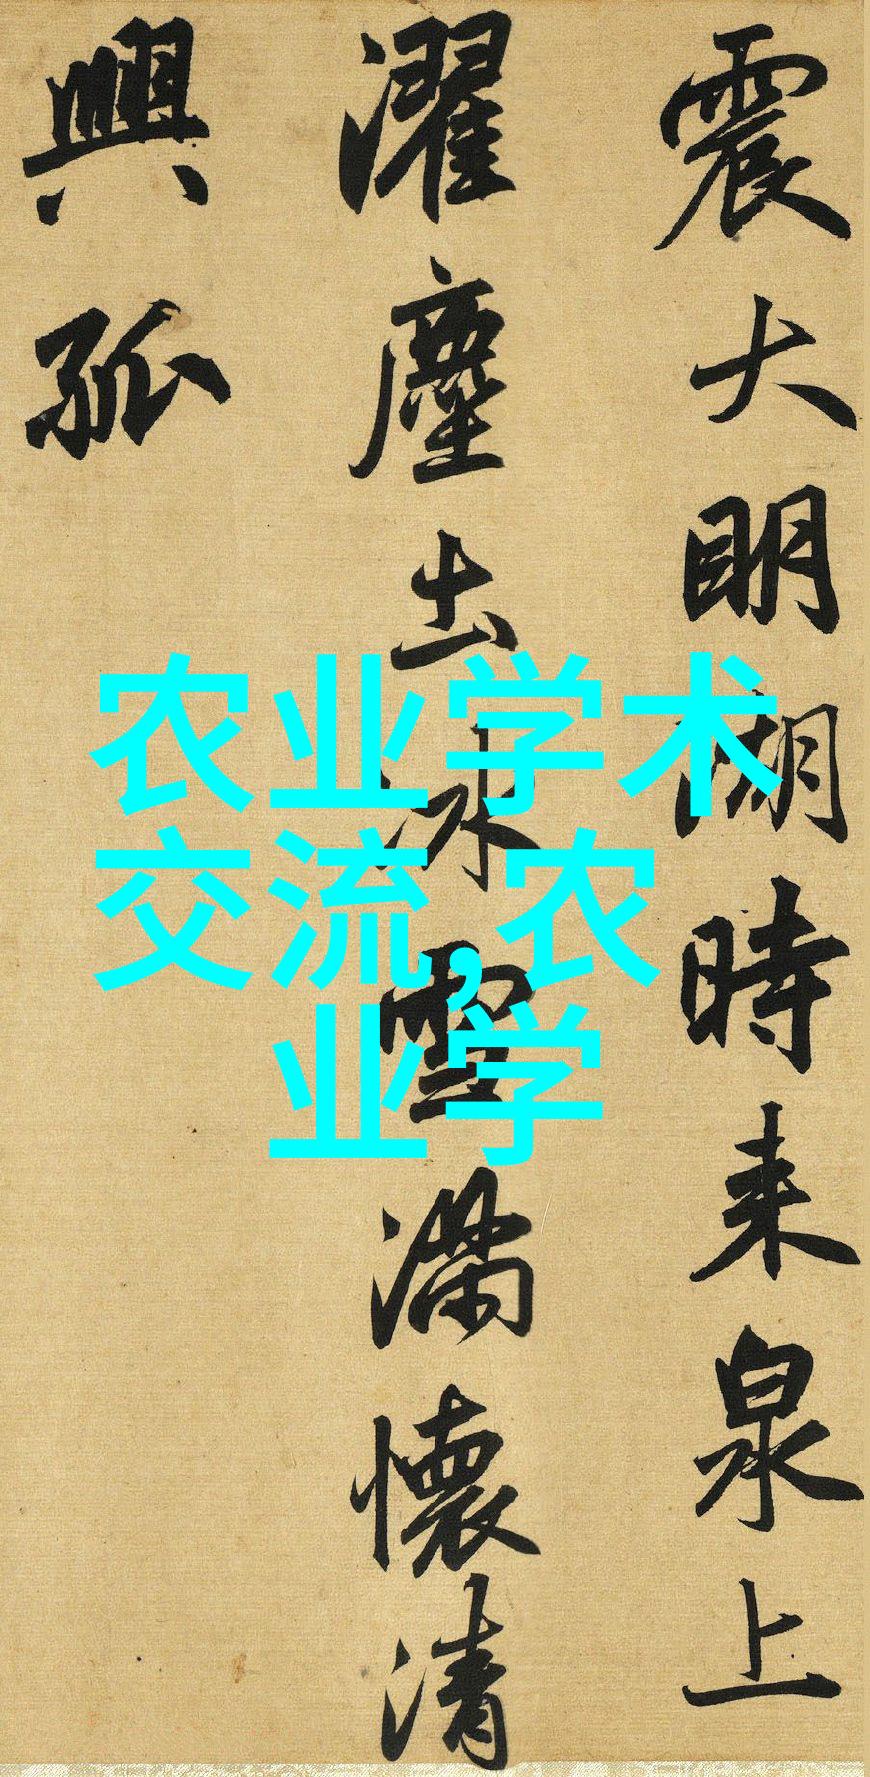 震大明湖時来泉上
濯塵出冰雪滿懷清
興孤
农业学术
交流,农
业学